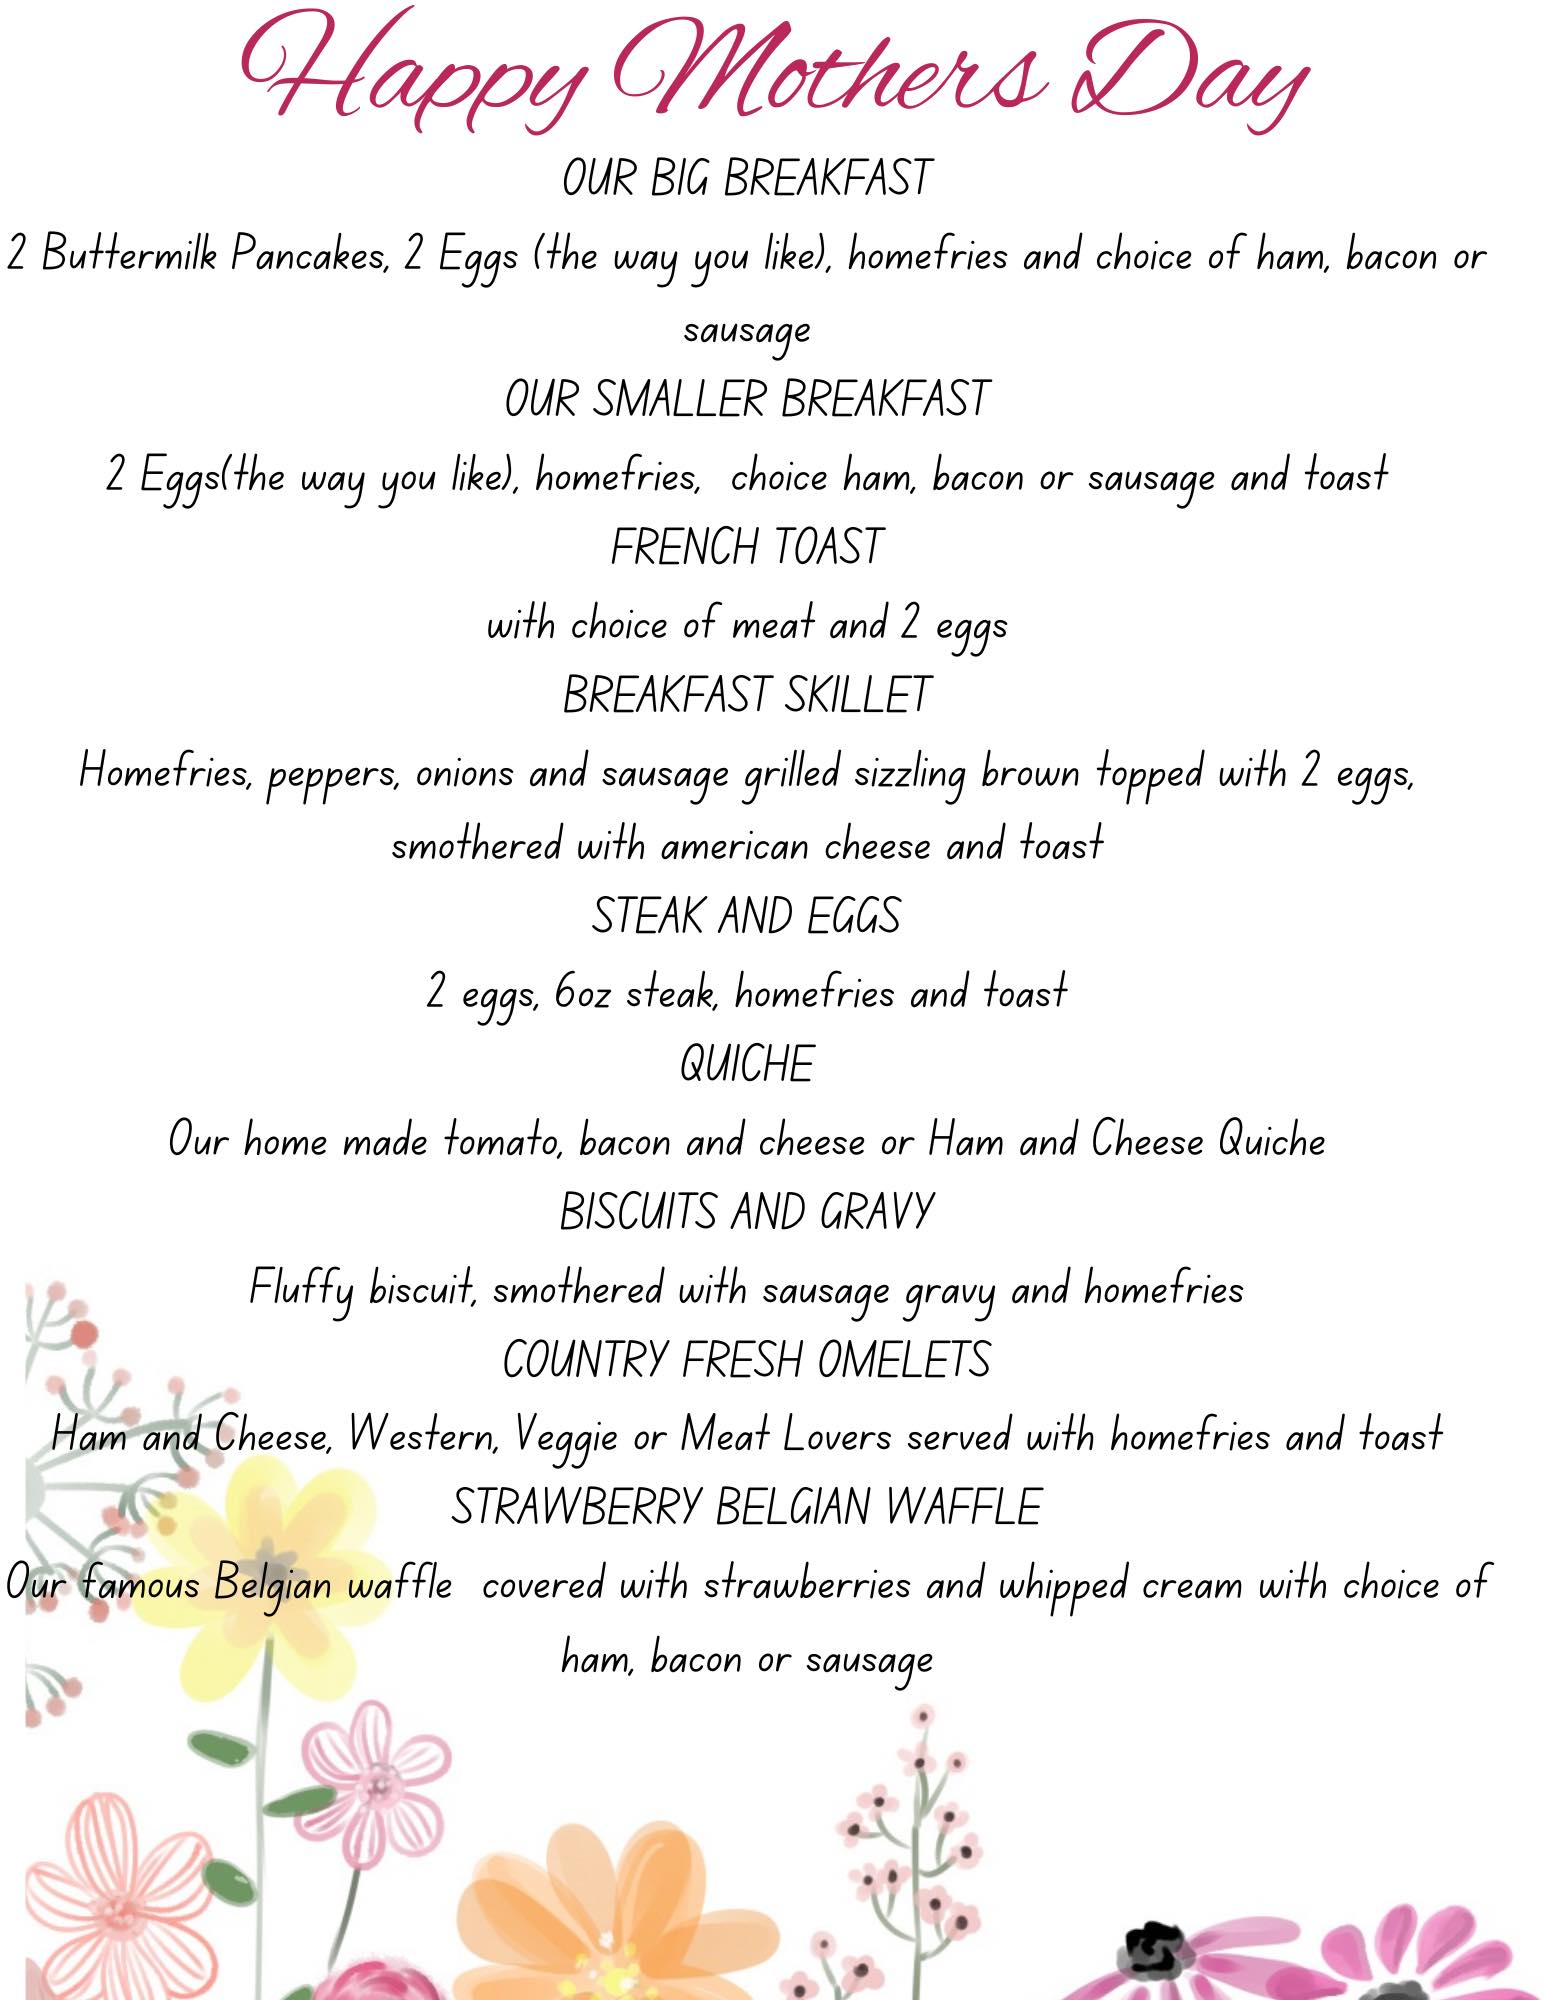 Happy Mothers Day
OUR BIG BREAKFAST
2 Buttermilk Pancakes, 2 Eggs (the way you like), homefries and choice of ham, bacon or
sausage
OUR SMALLER BREAKFAST
2 Eggs(the way you like), homefries,  choice ham, bacon or sausage and toast
FRENCH TOAST
with choice of meat and 2 eggs
BREAKFAST SKILLET
Homefries, peppers, onions and sausage grilled sizzling brown topped with 2 eggs,
smothered with american cheese and toast
STEAK AND EGGS
2 eggs, 6oz steak, homefries and toast
QUICHE
Our home made tomato, bacon and cheese or Ham and Cheese Quiche
BISCUITS AND GRAVY
Fluffy biscuit, smothered with sausage gravy and homefries
COUNTRY FRESH OMELETS
Ham and Cheese, Western, Veggie or Meat Lovers served with homefries and toast
STRAWBERRY BELGIAN WAFFLE
Our famous Belgian waffle  covered with strawberries and whipped cream with choice of
ham, bacon or sausage